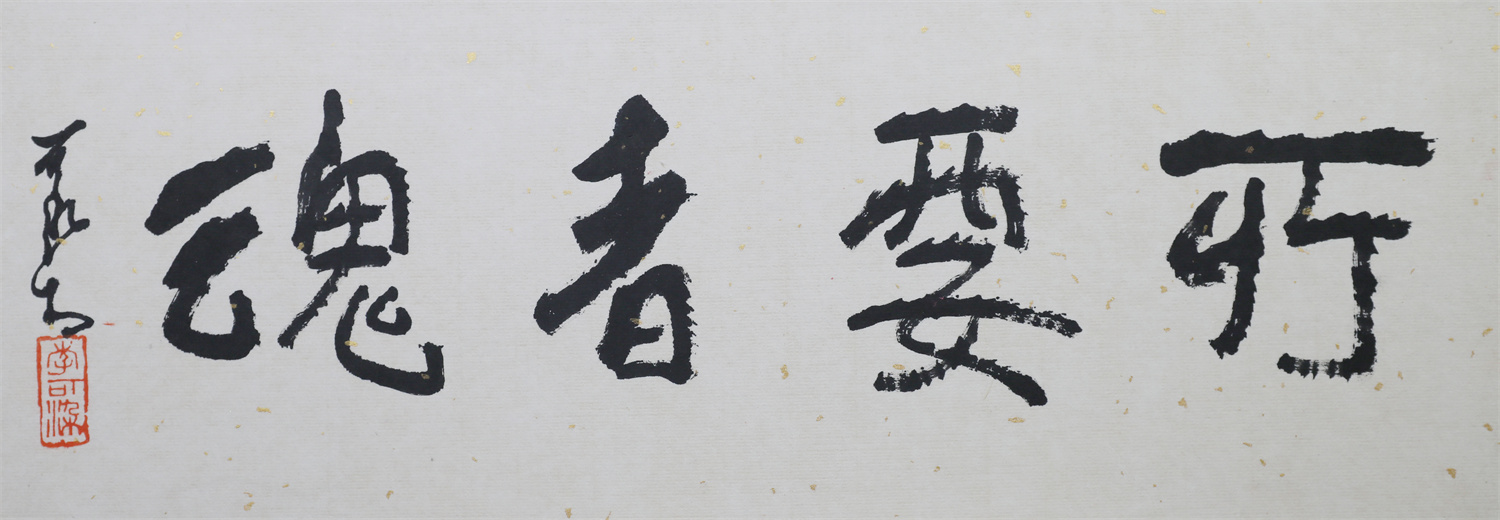 所要者魂
可染书
李可染